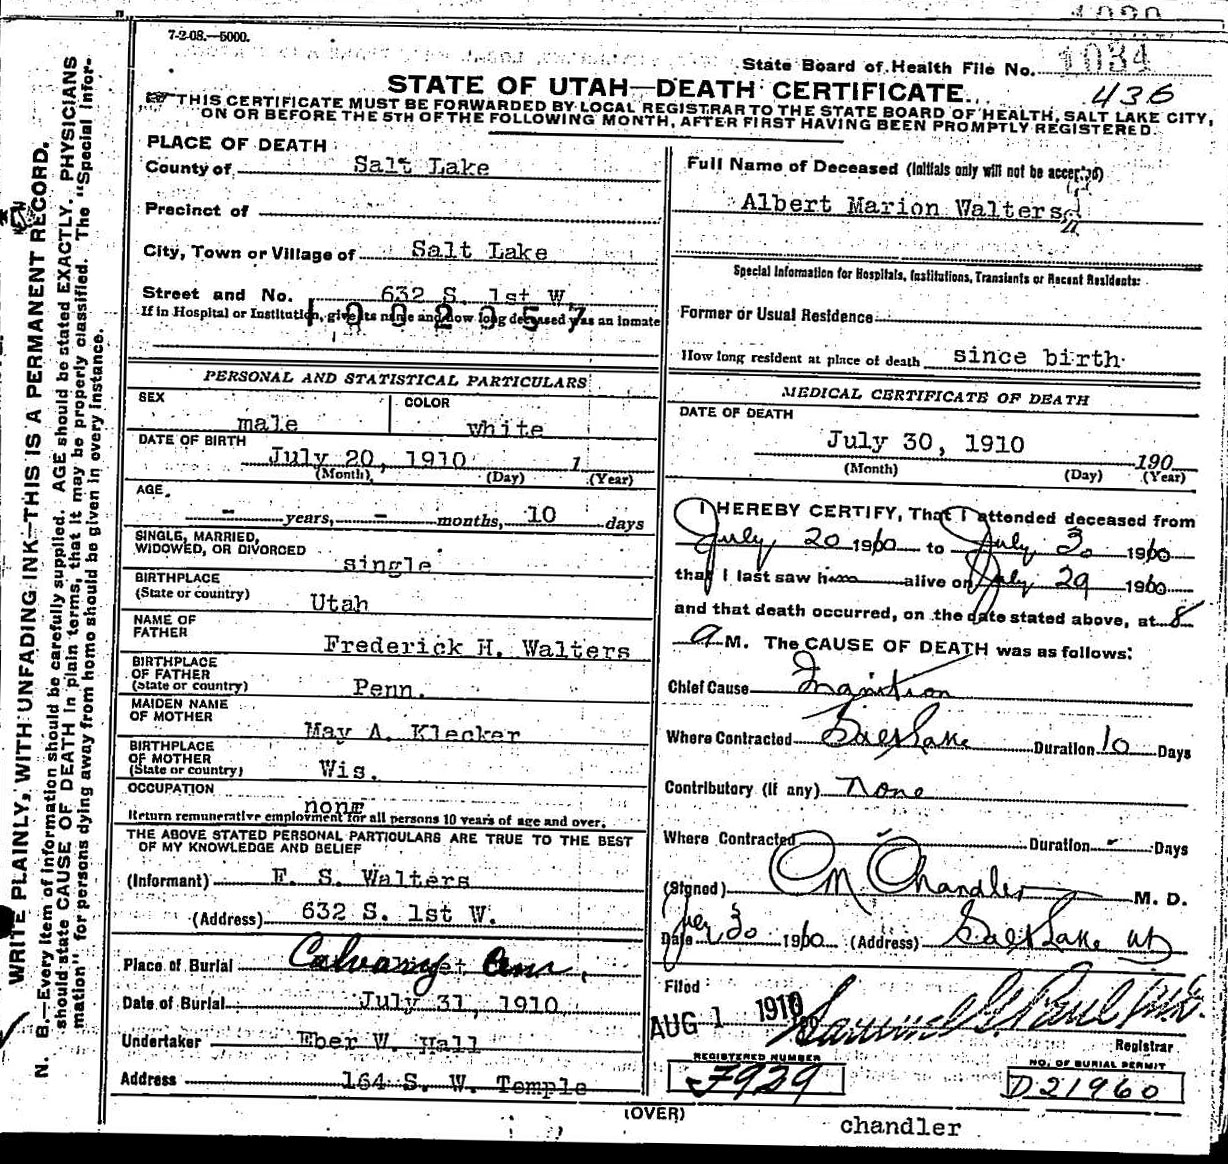 7-2-08.—5000.
State Board of Health File No. 1034
STATE OF UTAH—DEATH CERTIFICATE.
436
THIS CERTIFICATE MUST BE FORWARDED BY LOCAL REGISTRAR TO THE STATE BOARD OF HEALTH, SALT LAKE CITY,
ON OR BEFORE THE 5TH OF THE FOLLOWING MONTH, AFTER FIRST HAVING BEEN PROMPTLY REGISTERED.
WRITE PLAINLY, WITH UNFADING INK—THIS IS A PERMANENT RECORD.
N. B.—Every item of information should be carefully supplied. AGE should be stated EXACTLY. PHYSICIANS
should state CAUSE OF DEATH in plain terms, that it may be properly classified. The "Special Infor-
mation" for persons dying away from home should be given in every instance.
PLACE OF DEATH
County of Salt Lake
Precinct of
City, Town or Village of Salt Lake
Street and No. 632 S. 1st W.
If in Hospital or Institution, give its name and how long deceased was an inmate
1002057
PERSONAL AND STATISTICAL PARTICULARS
SEX male
COLOR white
DATE OF BIRTH
July 20, 1910 1
(Month) (Day) (Year)
AGE
- years, - months, 10 days
SINGLE, MARRIED,
WIDOWED, OR DIVORCED single
BIRTHPLACE
(State or country) Utah
NAME OF
FATHER Frederick H. Walters
BIRTHPLACE
OF FATHER
(State or country) Penn.
MAIDEN NAME
OF MOTHER May A. Klecker
BIRTHPLACE
OF MOTHER
(State or country) Wis.
OCCUPATION none
Return remunerative employment for all persons 10 years of age and over.
THE ABOVE STATED PERSONAL PARTICULARS ARE TRUE TO THE BEST
OF MY KNOWLEDGE AND BELIEF
(Informant) F. S. Walters
(Address) 632 S. 1st W.
Place of Burial Calvary Cem,
Date of Burial July 31, 1910
Undertaker Eber W. Hall
Address 164 S. W. Temple
Full Name of Deceased (Initials only will not be accepted)
Albert Marion Walters
Special Information for Hospitals, Institutions, Transients or Recent Residents:
Former or Usual Residence
How long resident at place of death since birth
MEDICAL CERTIFICATE OF DEATH
DATE OF DEATH
July 30, 1910 190
(Month) (Day) (Year)
I HEREBY CERTIFY, That I attended deceased from
July 20 1910 to July 30 1910
that I last saw him alive on July 29 1910
and that death occurred, on the date stated above, at 8
a M. The CAUSE OF DEATH was as follows:
Chief Cause Inanition
Where Contracted Salt Lake Duration 10 Days
Contributory (if any) None
Where Contracted Duration - Days
(Signed) CM Chandler M. D.
Date July 30 1910 (Address) Salt Lake Ut
Filed
AUG 1 1910 Samuel G Paul M.D.
Registrar
REGISTERED NUMBER
NO. OF BURIAL PERMIT
J7929
D21960
(OVER)
chandler